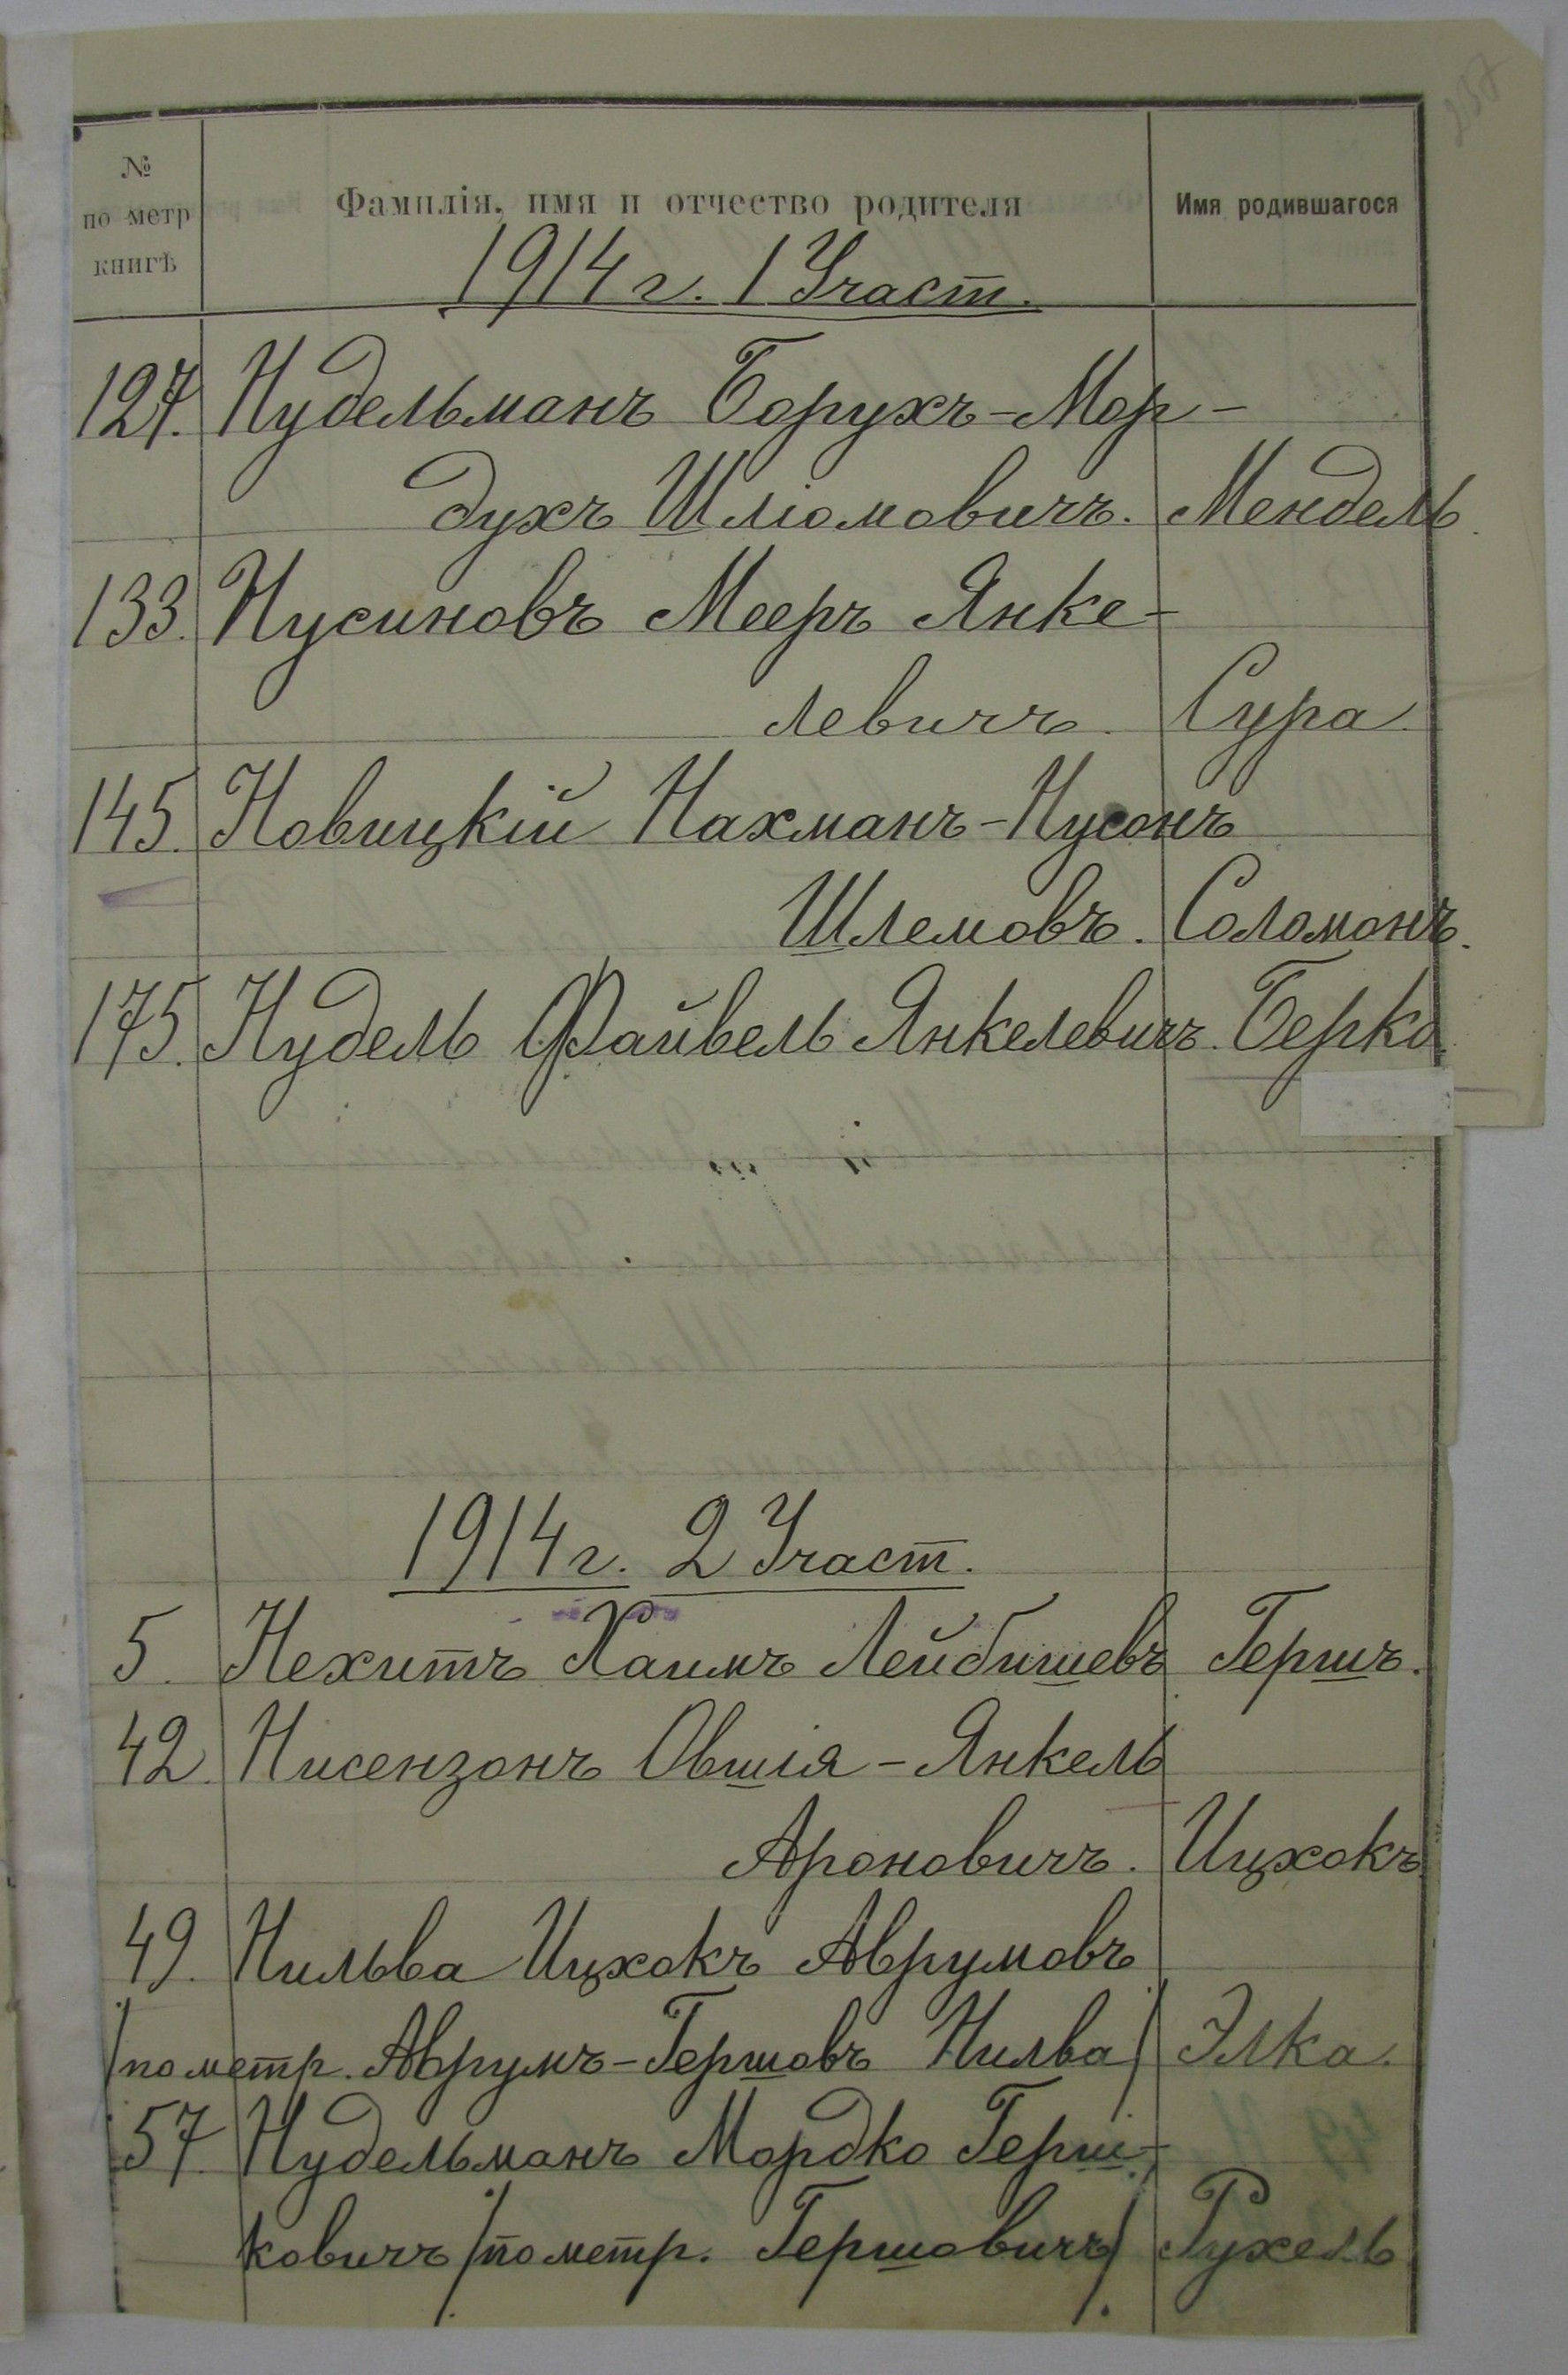 №
по метр
книгѣ
Фамилія, имя и отчество родителя
Имя родившагося
1914 г. 1 Участ.
127. Нудельманъ Борухъ-Мор-
духъ Шліомовичъ. Мендель.
133. Нусиновъ Мееръ Янке-
левичъ. Сура.
145. Новицкій Нахманъ-Нусонъ
Шлемовъ. Соломонъ.
175. Нудель Файвель Янкелевичъ. Берко.
1914 г. 2 Участ.
5. Нехитъ Хаимъ Лейбишевъ Гершъ.
42. Нисензонъ Овшія-Янкель
Ароновичъ. Ицхокъ.
49. Нильва Ицхокъ Аврумовъ
/по метр. Аврумъ-Гершовъ Нилва/ Элка.
57. Нудельманъ Мордко Герш-
ковичъ /по метр. Гершовичъ/. Рухель